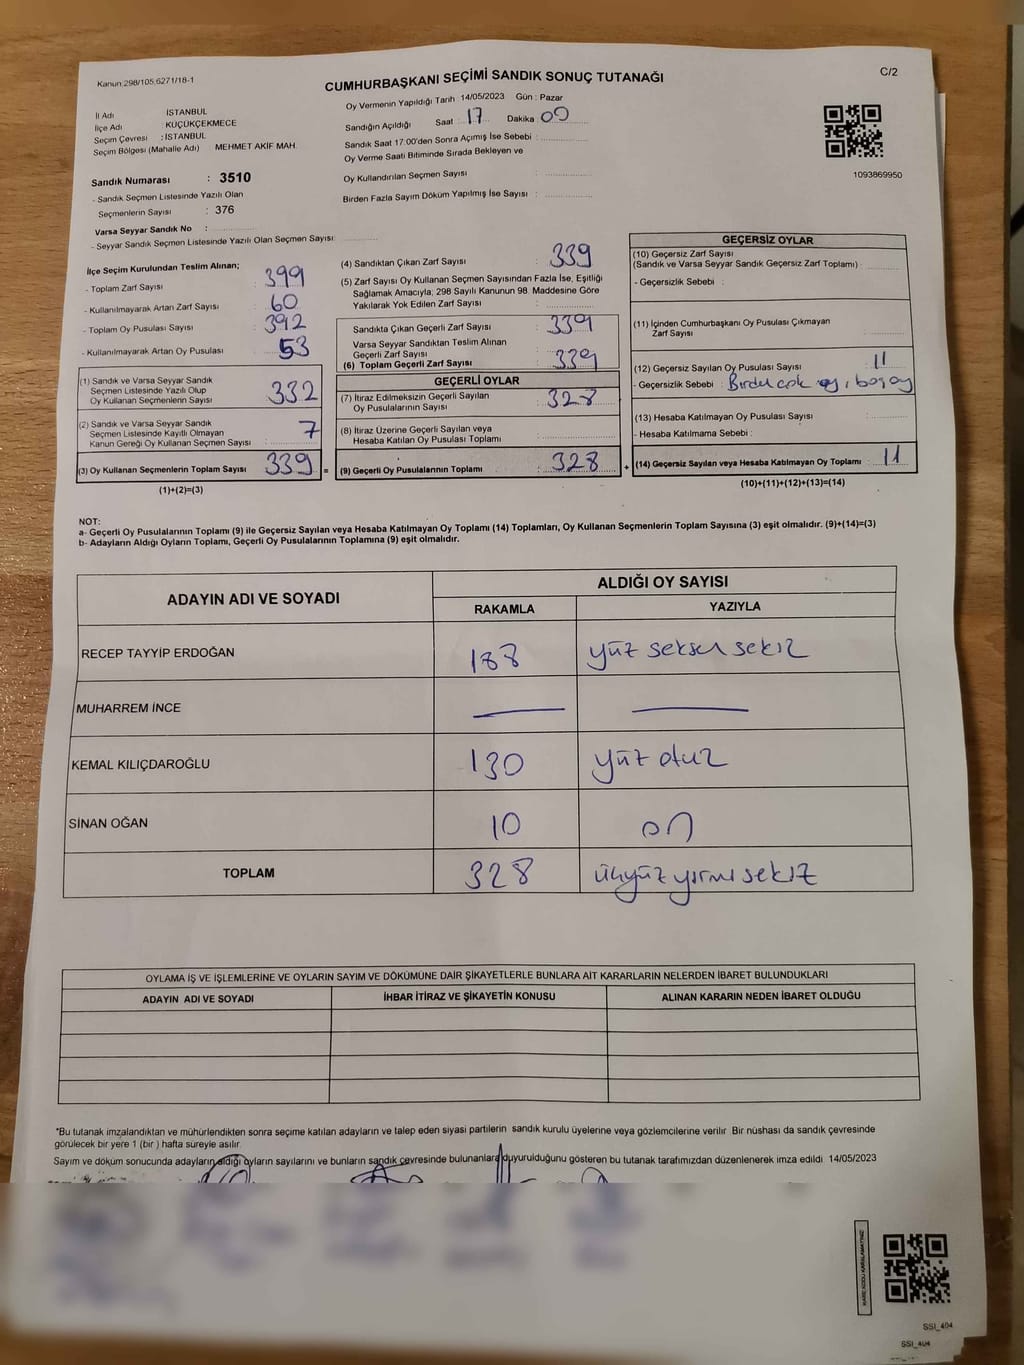 Kanun:298/105,6271/18-1
CUMHURBAŞKANI SEÇİMİ SANDIK SONUÇ TUTANAĞI
C/2
İl Adı İSTANBUL
İlçe Adı KÜÇÜKÇEKMECE
Seçim Çevresi : İSTANBUL
Seçim Bölgesi (Mahalle Adı) MEHMET AKİF MAH.
Sandık Numarası : 3510
- Sandık Seçmen Listesinde Yazılı Olan
Seçmenlerin Sayısı : 376
Varsa Seyyar Sandık No :
- Seyyar Sandık Seçmen Listesinde Yazılı Olan Seçmen Sayısı:
Oy Vermenin Yapıldığı Tarih 14/05/2023 Gün : Pazar
Sandığın Açıldığı Saat : 17 Dakika : 00
Sandık Saat 17:00'den Sonra Açımış İse Sebebi :
Oy Verme Saati Bitiminde Sırada Bekleyen ve
Oy Kullandırılan Seçmen Sayısı :
Birden Fazla Sayım Döküm Yapılmış İse Sayısı :
1093869950
İlçe Seçim Kurulundan Teslim Alınan;
- Toplam Zarf Sayısı : 399
- Kullanılmayarak Artan Zarf Sayısı : 60
- Toplam Oy Pusulası Sayısı : 392
- Kullanılmayarak Artan Oy Pusulası : 53
(1) Sandık ve Varsa Seyyar Sandık
Seçmen Listesinde Yazılı Olup
Oy Kullanan Seçmenlerin Sayısı : 332
(2) Sandık ve Varsa Seyyar Sandık
Seçmen Listesinde Kayıtlı Olmayan
Kanun Gereği Oy Kullanan Seçmen Sayısı : 7
(3) Oy Kullanan Seçmenlerin Toplam Sayısı : 339 =
(1)+(2)=(3)
(4) Sandıktan Çıkan Zarf Sayısı : 339
(5) Zarf Sayısı Oy Kullanan Seçmen Sayısından Fazla İse, Eşitliği
Sağlamak Amacıyla; 298 Sayılı Kanunun 98. Maddesine Göre
Yakılarak Yok Edilen Zarf Sayısı :
Sandıkta Çıkan Geçerli Zarf Sayısı : 339
Varsa Seyyar Sandıktan Teslim Alınan
Geçerli Zarf Sayısı :
(6) Toplam Geçerli Zarf Sayısı : 339
GEÇERLİ OYLAR
(7) İtiraz Edilmeksizin Geçerli Sayılan
Oy Pusulalarının Sayısı : 328
(8) İtiraz Üzerine Geçerli Sayılan veya
Hesaba Katılan Oy Pusulası Toplamı :
(9) Geçerli Oy Pusulalarının Toplamı : 328 +
GEÇERSİZ OYLAR
(10) Geçersiz Zarf Sayısı
(Sandık ve Varsa Seyyar Sandık Geçersiz Zarf Toplamı) :
- Geçersizlik Sebebi :
(11) İçinden Cumhurbaşkanı Oy Pusulası Çıkmayan
Zarf Sayısı :
(12) Geçersiz Sayılan Oy Pusulası Sayısı : 11
- Geçersizlik Sebebi : Birden çok oy, boş oy
(13) Hesaba Katılmayan Oy Pusulası Sayısı :
- Hesaba Katılmama Sebebi :
(14) Geçersiz Sayılan veya Hesaba Katılmayan Oy Toplamı : 11
(10)+(11)+(12)+(13)=(14)
NOT:
a- Geçerli Oy Pusulalarının Toplamı (9) ile Geçersiz Sayılan veya Hesaba Katılmayan Oy Toplamı (14) Toplamları, Oy Kullanan Seçmenlerin Toplam Sayısına (3) eşit olmalıdır. (9)+(14)=(3)
b- Adayların Aldığı Oyların Toplamı, Geçerli Oy Pusulalarının Toplamına (9) eşit olmalıdır.
ADAYIN ADI VE SOYADI
ALDIĞI OY SAYISI
RAKAMLA YAZIYLA
RECEP TAYYİP ERDOĞAN 188 yüz seksen sekiz
MUHARREM İNCE
KEMAL KILIÇDAROĞLU 130 yüz otuz
SİNAN OĞAN 10 on
TOPLAM 328 üçyüz yirmi sekiz
OYLAMA İŞ VE İŞLEMLERİNE VE OYLARIN SAYIM VE DÖKÜMÜNE DAİR ŞİKAYETLERLE BUNLARA AİT KARARLARIN NELERDEN İBARET BULUNDUKLARI
ADAYIN ADI VE SOYADI İHBAR İTİRAZ VE ŞİKAYETİN KONUSU ALINAN KARARIN NEDEN İBARET OLDUĞU
*Bu tutanak imzalandıktan ve mühürlendikten sonra seçime katılan adayların ve talep eden siyasi partilerin sandık kurulu üyelerine veya gözlemcilerine verilir Bir nüshası da sandık çevresinde
görülecek bir yere 1 (bir ) hafta süreyle asılır.
Sayım ve döküm sonucunda adayların aldığı oyların sayılarını ve bunların sandık çevresinde bulunanlara duyurulduğunu gösteren bu tutanak tarafımızdan düzenlenerek imza edildi 14/05/2023
KARE KODU KARALAMAYINIZ!
SSI_404
SSI_404